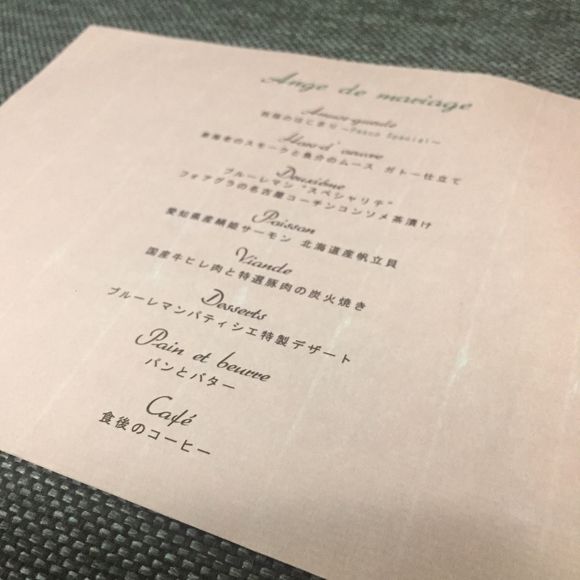 Ange de mariage
Amuse-gueule
のはじまり～Pasco Special～
Hors-d'œuvre
のスモークと魚介のムース ガトー仕立て
Deuxième
ブルーレマン "スペシャリテ"
フォアグラの名古屋コーチンコンソメ茶漬け
Poisson
愛知県産絹姫サーモン 北海道産帆立貝
Viande
国産牛ヒレ肉と特選豚肉の炭火焼き
Desserts
ブルーレマンパティシエ特製デザート
Pain et beurre
パンとバター
Café
食後のコーヒー